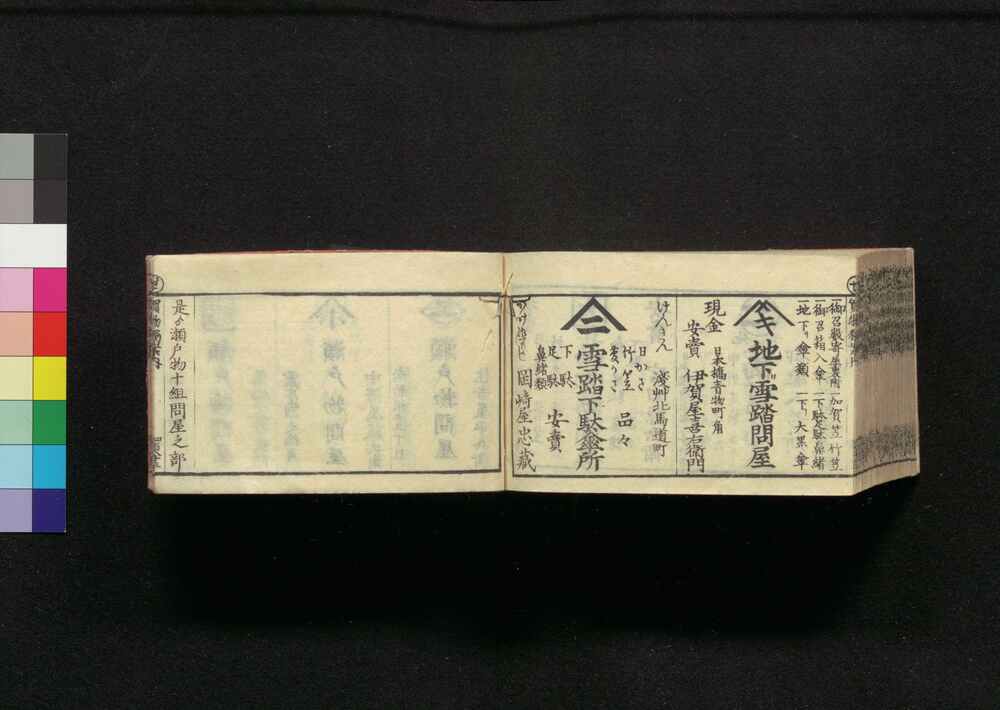 一御召籠寄産表所一加賀笠竹笠
一御召箱入傘一下駄足駄鼻緒
一地下り傘類一下り大黒傘
キ地下り雪踏問屋
日本橋青物町角
現金安賣伊賀屋吉右衛門
けんきん淺艸北馬道町
日かさ
竹笠品々
二雪踏下駄傘所
下駄
足駄安賣
鼻緒類
岡崎屋忠蔵
是ゟ瀬戸物十組問屋之部